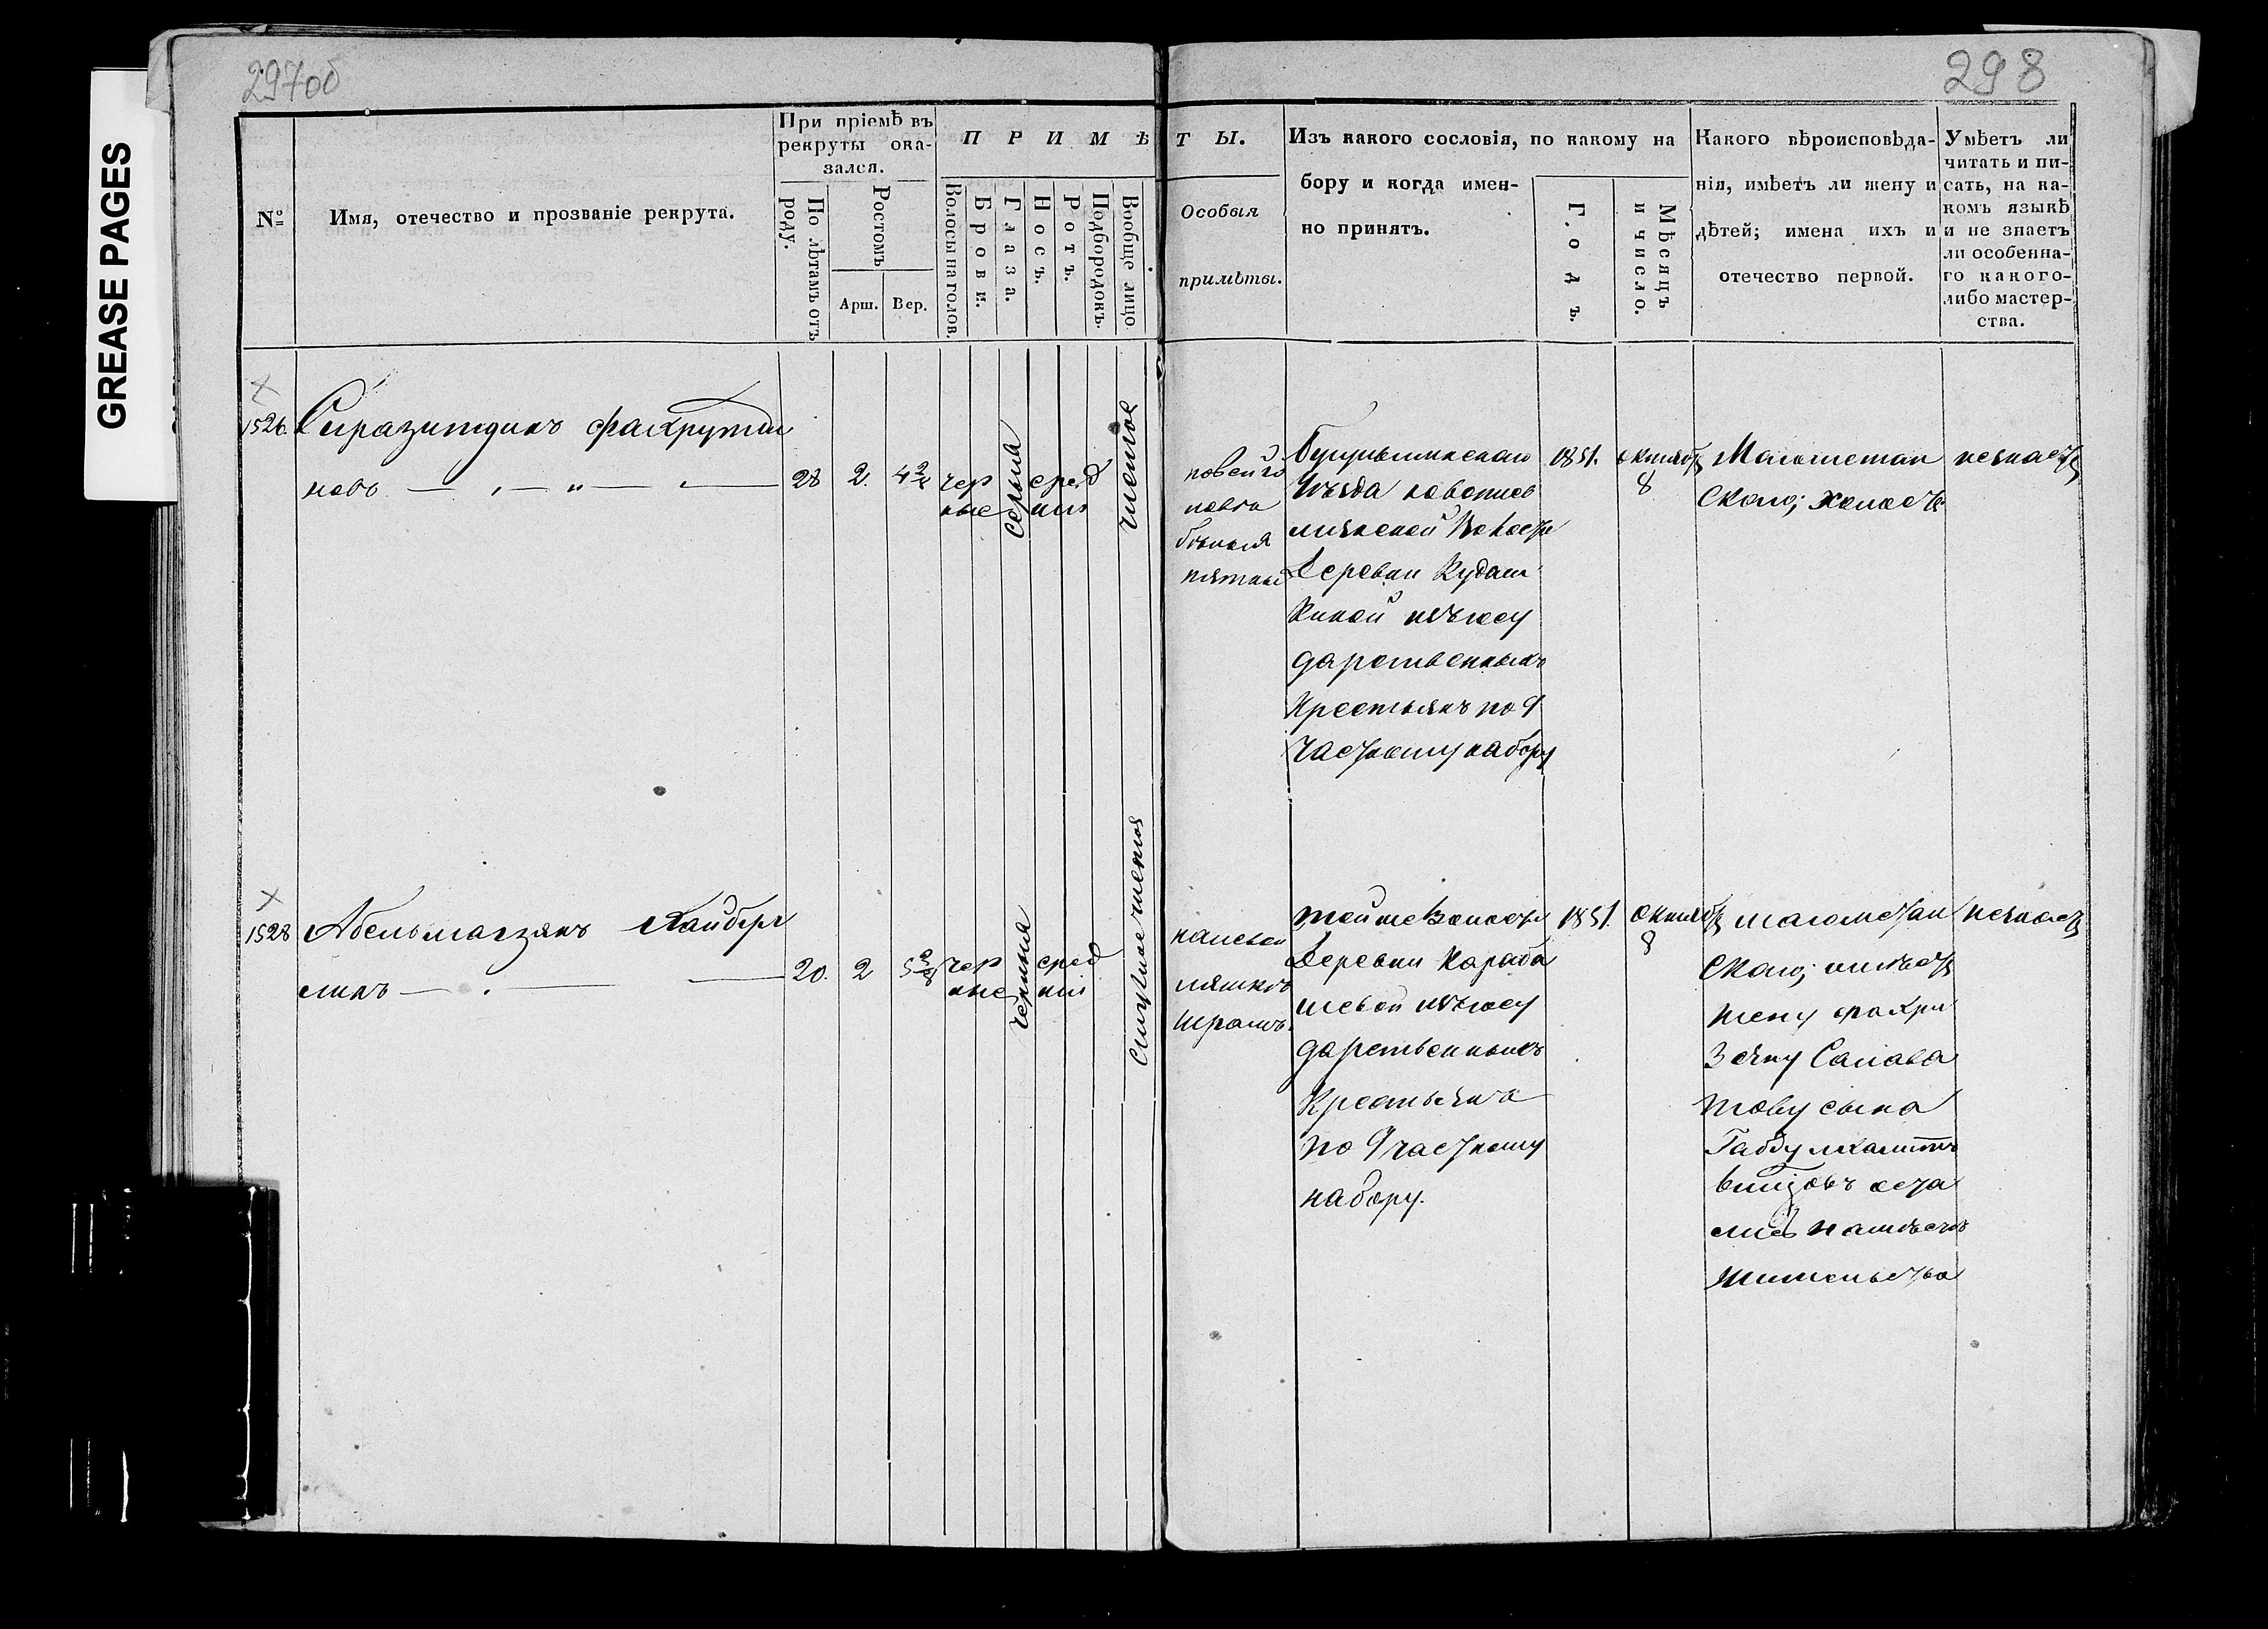 GREASE PAGES
297об
298
№
Имя, отечество и прозваніе рекрута.
При пріемѣ въ
рекруты ока-
зался.
По лѣтамъ отъ
роду.
Ростомъ
Арш. Вер.
ПРИМѢТЫ.
Волосы на голов.
Брови.
Глаза.
Носъ.
Ротъ.
Подбородокъ.
Вообще лицо
Особыя
примѣты.
Изъ какого сословія, по какому на
бору и когда имен-
но принятъ.
Годъ.
Мѣсяцъ
и число.
Какого вѣроисповѣда-
нія, имѣетъ ли жену и
дѣтей; имена ихъ и
отечество первой.
Умѣетъ ли
читать и пи-
сать, на ка-
комъ языкѣ
и не знаетъ
ли особенна-
го какого-
либо мастер-
ства.
1526.
Сиразитдинъ Фахрутди
новъ
28
2.
чер
ные
серыя
сред
ніи
чистое
пятны
Бугульминскаго
Уѣзда
Волости
Деревни Кудаш
киной изъ госу
дарственныхъ
Крестьянъ по 9
частному набору
1851.
октября
8
Магометан
скаго; холостъ
незнаетъ
1528
Абельмагзянъ
20.
2
чер
ные
черныя
сред
ніи
на левой
ляшкѣ
шрамъ.
той же Волости
Деревни Караба
шевой изъ госу
дарственныхъ
Крестьянъ
по 9 частному
набору.
1851.
октября
8
магометан
скаго; имѣетъ
жену Фахри
зяну Салава
тову сына
остались на мѣстѣ
жительства
незнаетъ